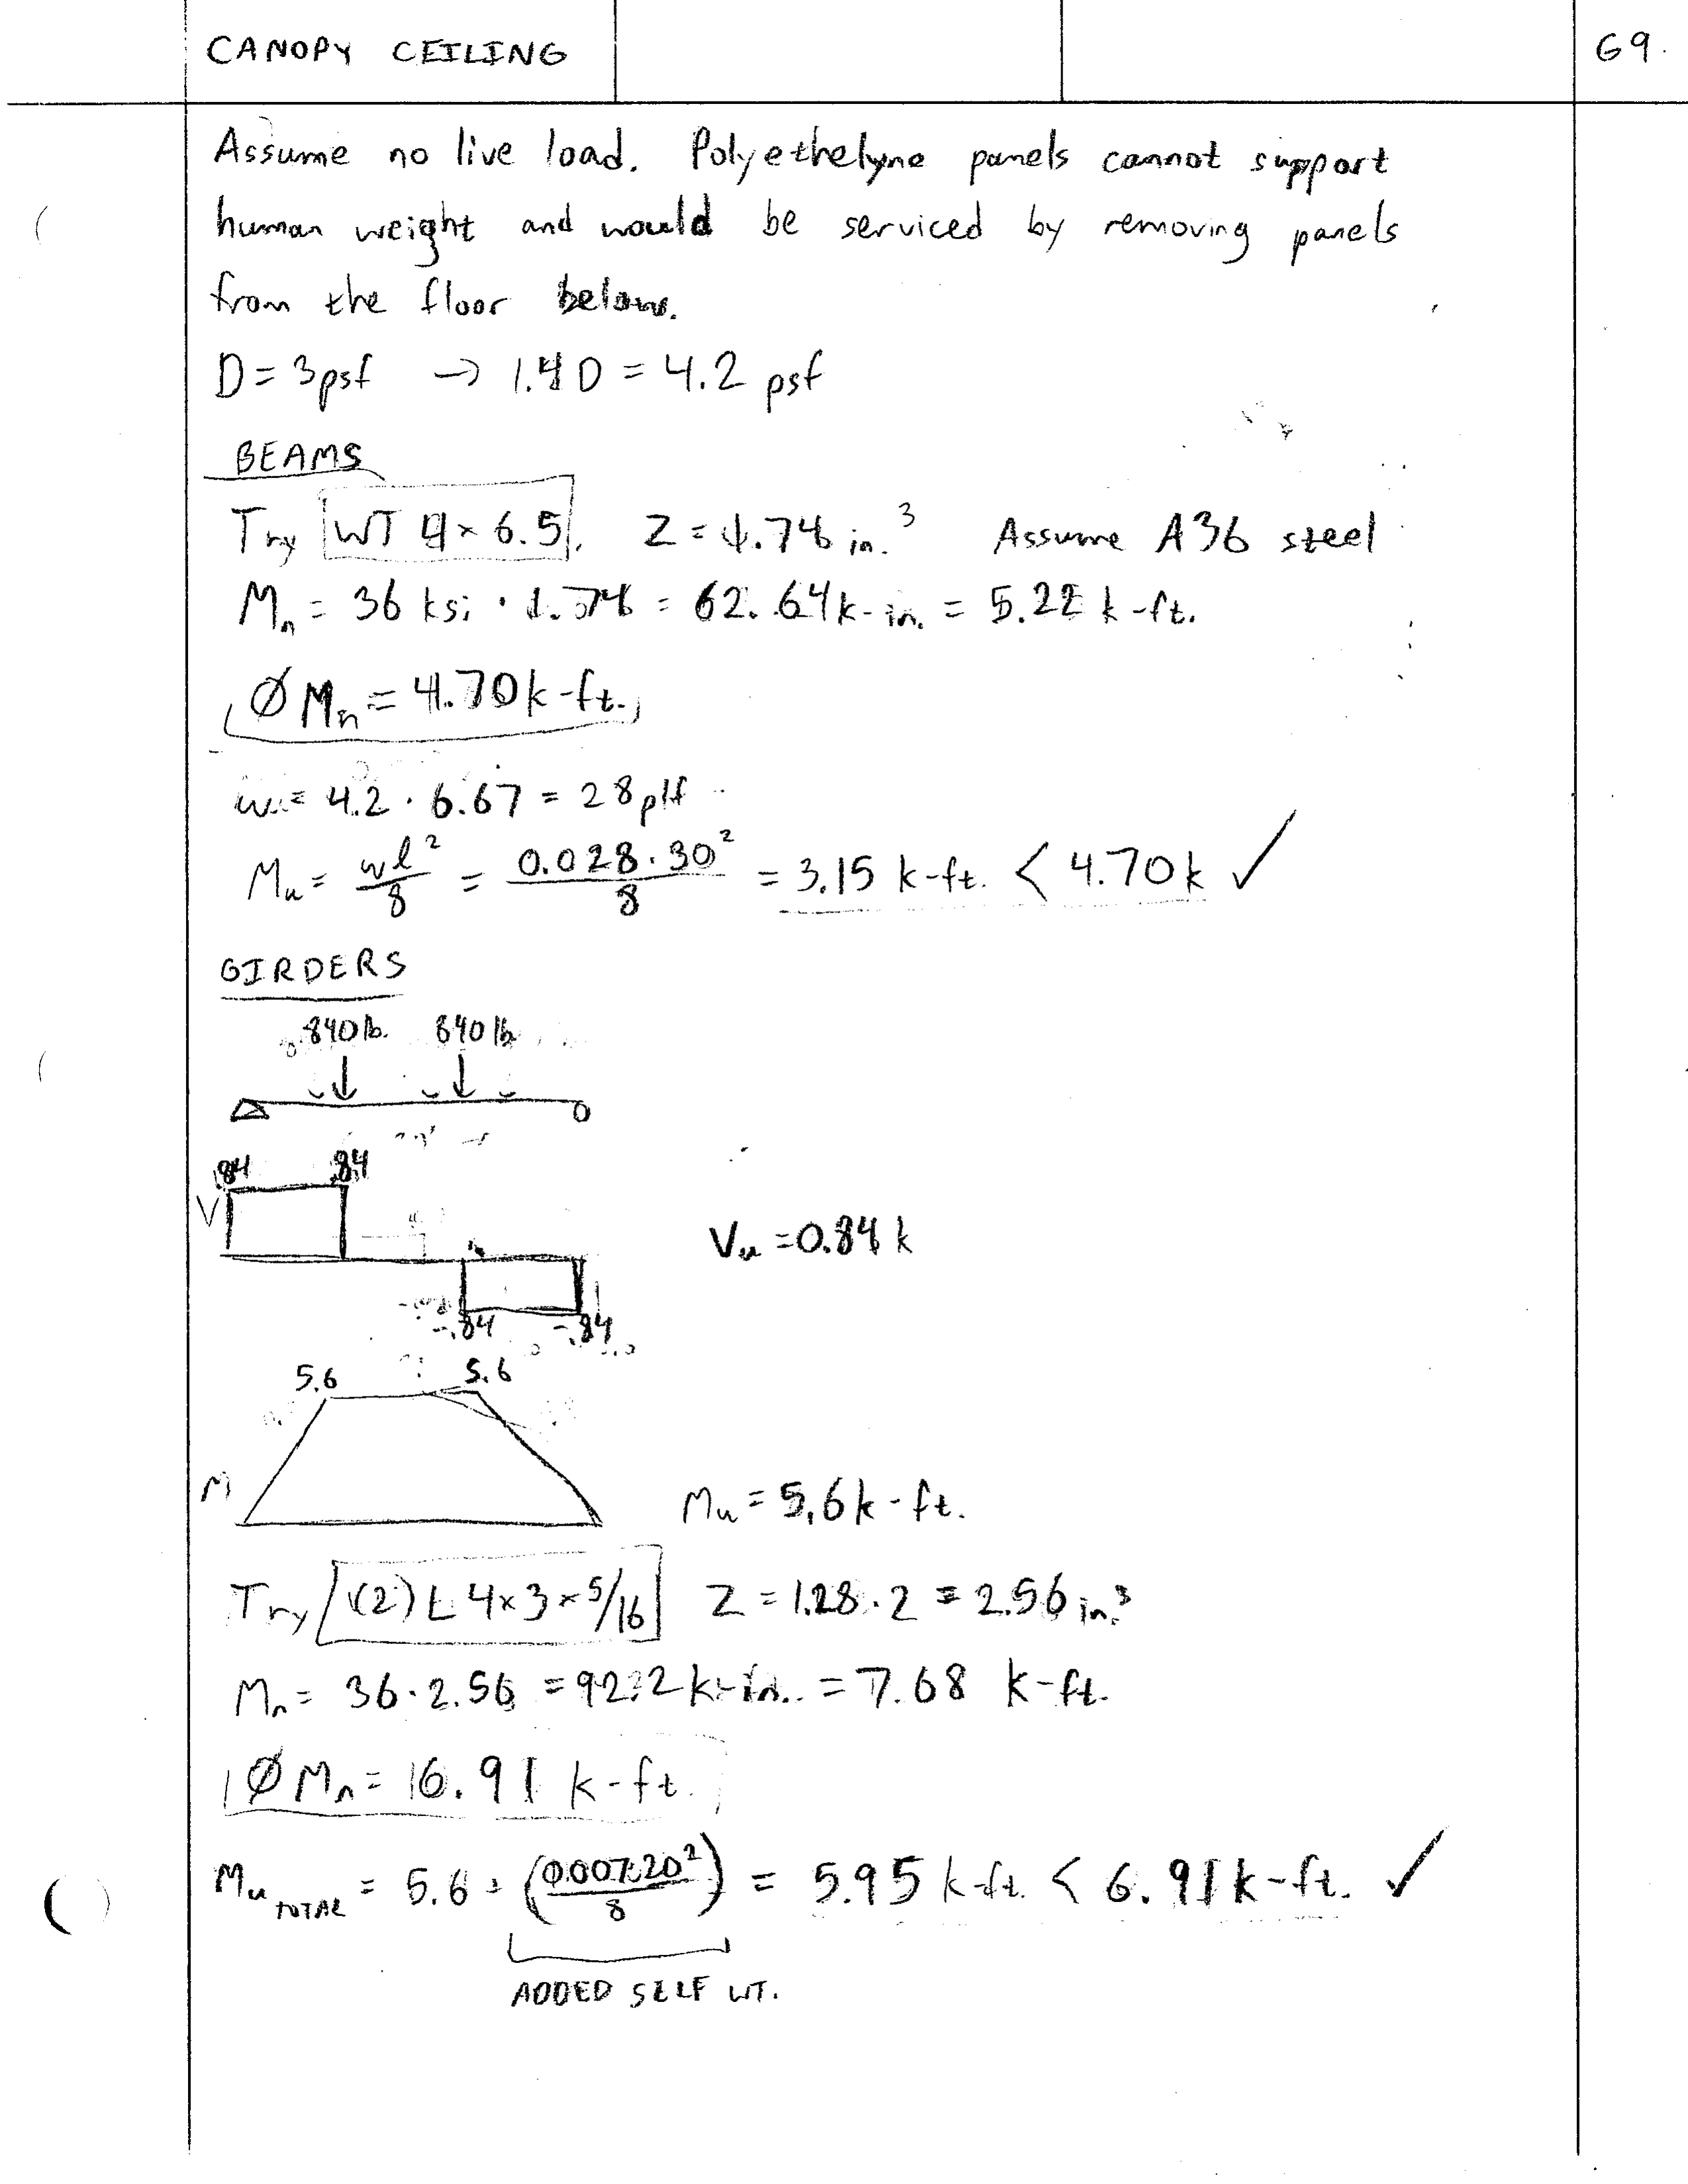 CANOPY CEILING
69.
Assume no live load. Polyethelyne panels cannot support
human weight and would be serviced by removing panels
from the floor below.
D = 3psf → 1.4D = 4.2 psf
BEAMS
Try WT 4×6.5. Z = 1.74 in.³ Assume A36 steel
Mn = 36 ksi · 1.74 = 62.64 k-in. = 5.22 k-ft.
ØMn = 4.70 k-ft.
w = 4.2 · 6.67 = 28 plf
Mu = wl²/8 = 0.028·30²/8 = 3.15 k-ft. < 4.70 k ✓
GIRDERS
840 lb. 840 lb.
.84 .84
V
Vu = 0.84 k
-.84 -.84
5.6 5.6
M
Mu = 5.6 k-ft.
Try (2) L 4×3×5/16 Z = 1.28·2 = 2.56 in.³
Mn = 36·2.56 = 92.2 k-in. = 7.68 k-ft.
ØMn = 6.91 k-ft.
Mu TOTAL = 5.6 + (0.007·20²/8) = 5.95 k-ft. < 6.91 k-ft. ✓
ADDED SELF WT.